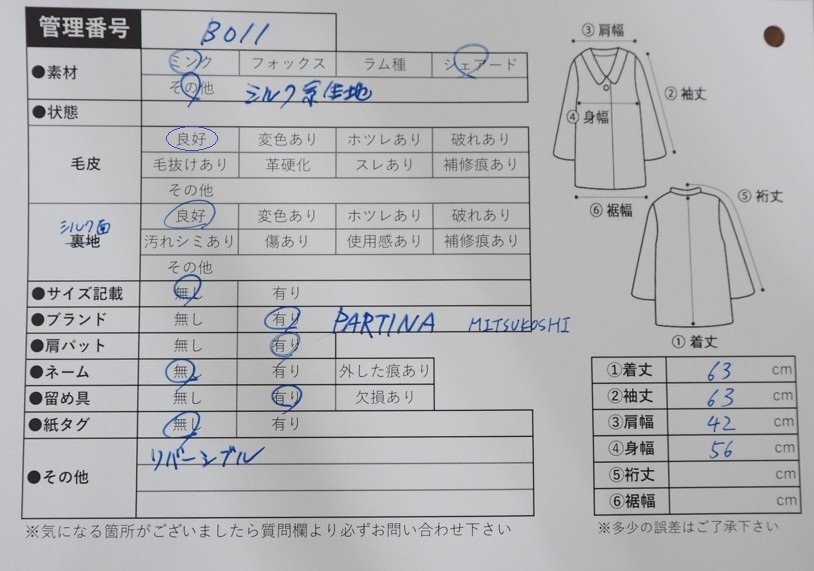 管理番号 B011
●素材 ミンク フォックス ラム種 シェアード
その他 シルク系生地
●状態
毛皮 良好 変色あり ホツレあり 破れあり
毛抜けあり 革硬化 スレあり 補修痕あり
その他
シルク面
裏地 良好 変色あり ホツレあり 破れあり
汚れシミあり 傷あり 使用感あり 補修痕あり
その他
●サイズ記載 無し 有り
●ブランド 無し 有り PARTINA MITSUKOSHI
●肩パット 無し 有り
●ネーム 無し 有り 外した痕あり
●留め具 有り 欠損あり
●紙タグ 無し 有り
●その他 リバーシブル
※気になる箇所がございましたら質問欄より必ずお問い合わせ下さい
③肩幅
②袖丈
④身幅
⑥裾幅
⑤裄丈
①着丈
①着丈 63 cm
②袖丈 63 cm
③肩幅 42 cm
④身幅 56 cm
⑤裄丈 cm
⑥裾幅 cm
※多少の誤差はご了承下さい